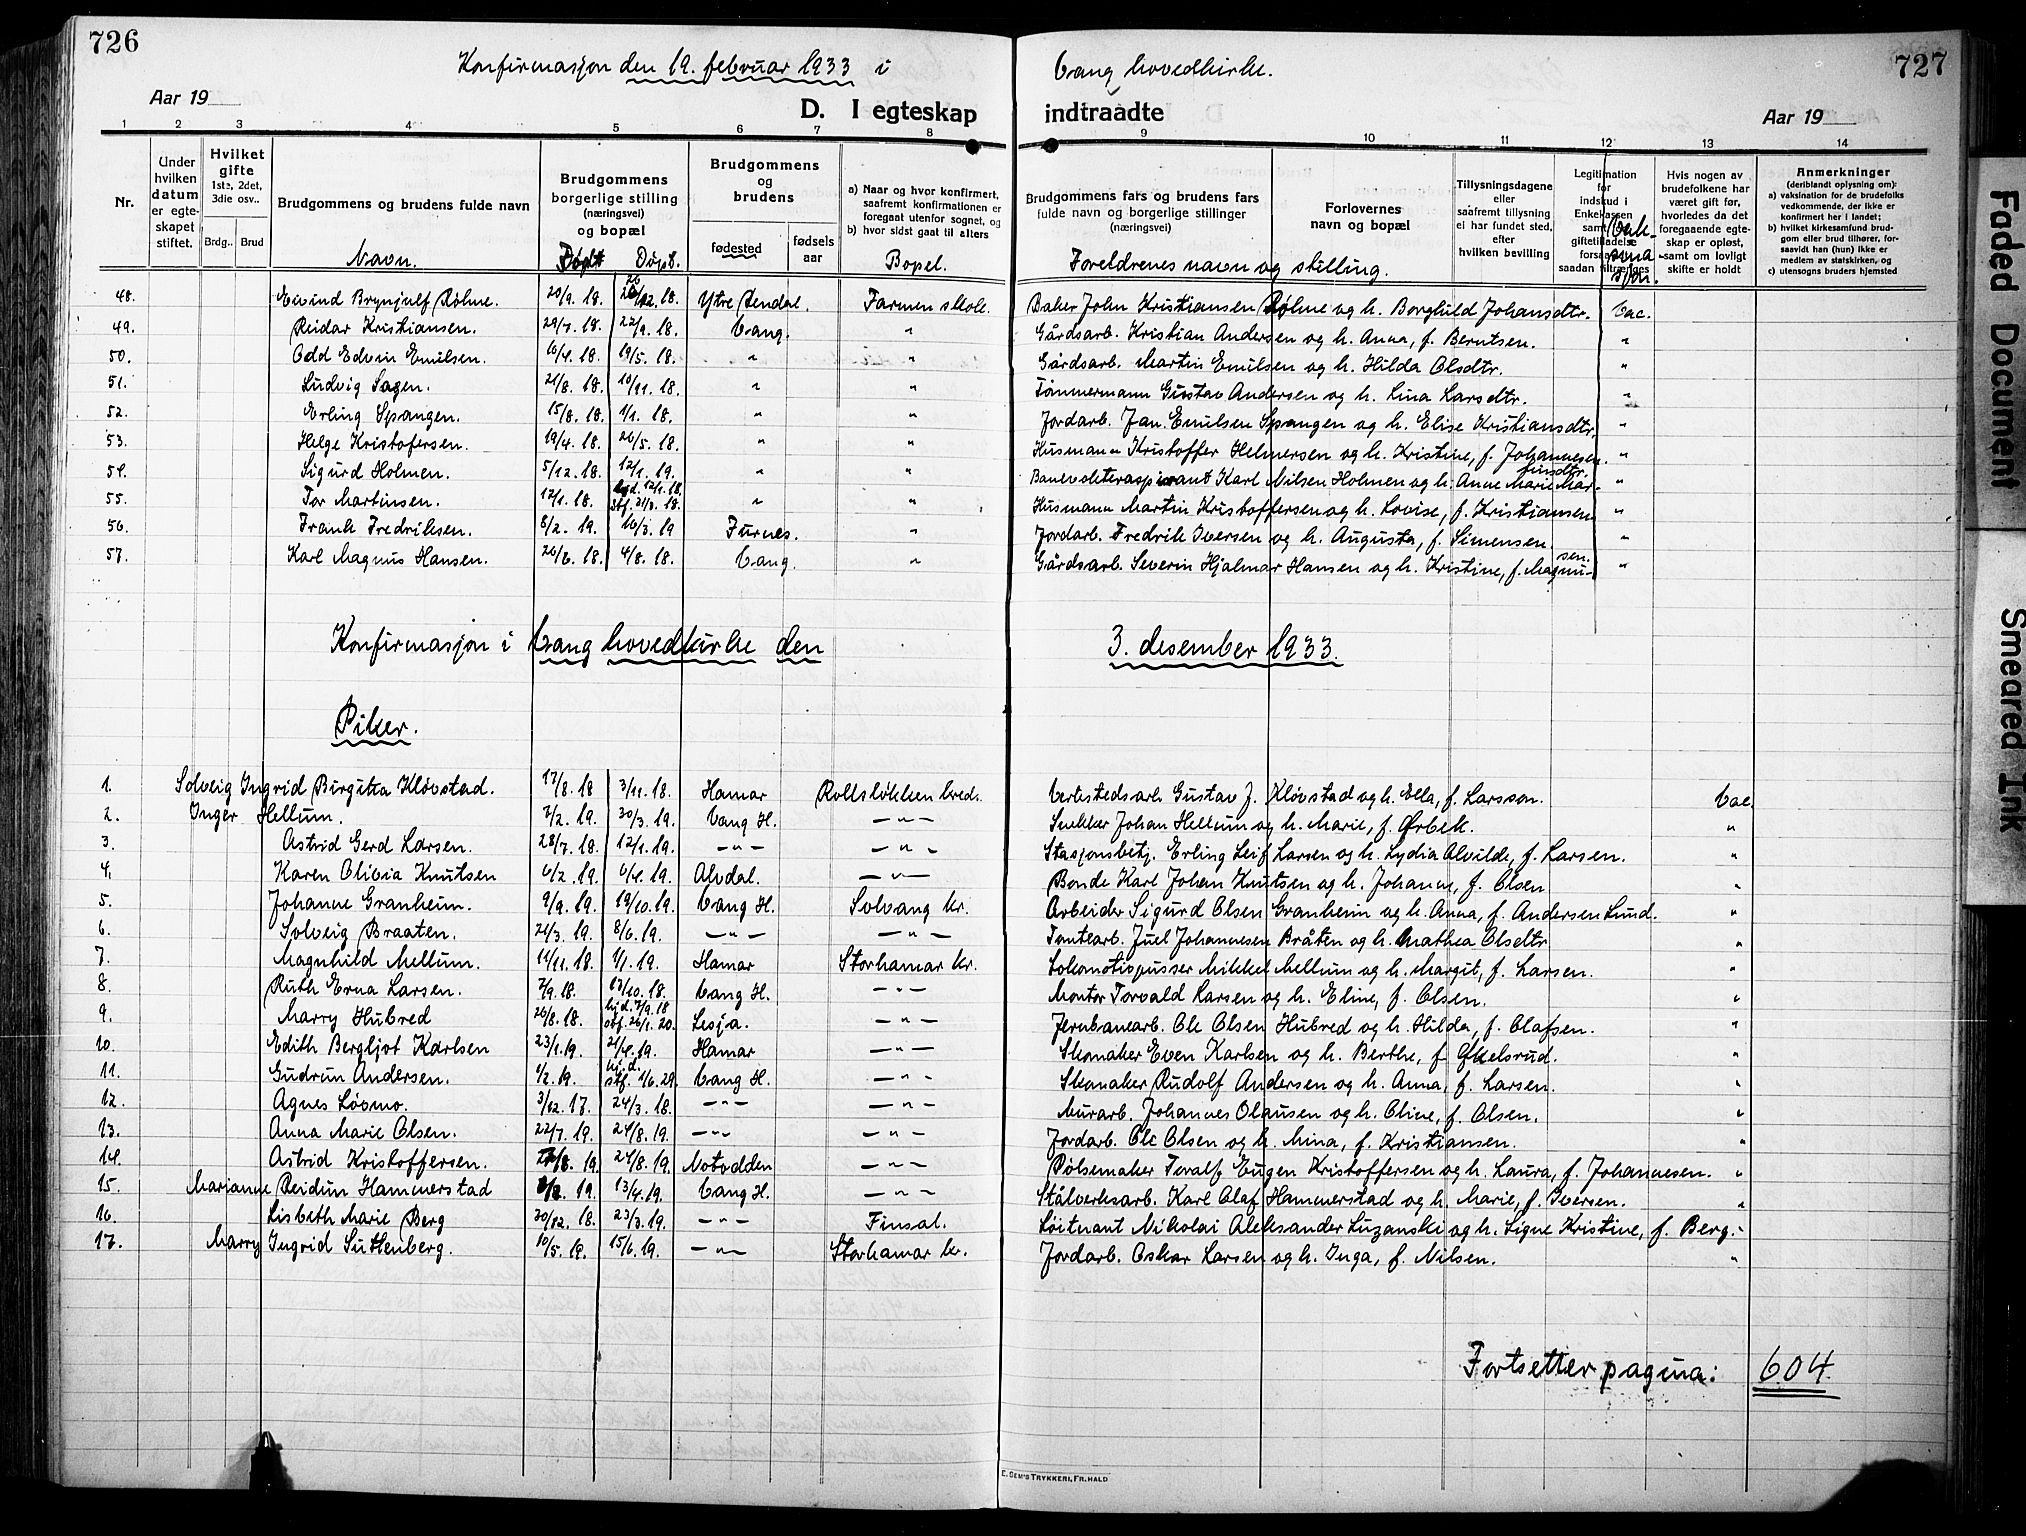 726
727
Konfirmasjon den 19. februar 1933 i Vang hovedkirke.
Aar 19
D. I egteskap indtraadte
Aar 19
1 2 3 4 5 6 7 8 9 10 11 12 13 14
Nr.
Under hvilken datum er egteskapet stiftet.
Hvilket gifte 1ste, 2det, 3die osv..
Brdg.. Brud
Brudgommens og brudens fulde navn
Navn.
Brudgommens borgerlige stilling (næringsvei) og bopæl
Født Døpt.
Brudgommens og brudens
fødested
fødsels aar
a) Naar og hvor konfirmert, saafremt konfirmationen er foregaat utenfor sognet, og
b) hvor sidst gaat til alters
Bopel.
Brudgommens fars og brudens fars fulde navn og borgerlige stillinger (næringsvei)
Foreldrenes navn og stilling.
Forlovernes navn og bopæl
Tillysningsdagene eller saafremt tillysning ei har fundet sted, efter hvilken bevilling
Legitimation for indskud i Enkekassen samt giftetilladelse forsaavidt saadan tiltrænges
Vaksinasjon.
Hvis nogen av brudefolkene har været gift før, hvorledes da det foregaaende egteskap er opløst, samt om lovligt skifte er holdt
Anmerkninger
(deriblandt oplysning om):
a) vaksination for de brudefolks vedkommende, der ikke er konfirmert her i landet;
b) hvilket kirkesamfund brudgom eller brud tilhører, forsaavidt han (hun) ikke er medlem av statskirken, og
c) utensogns bruders hjemsted
48. Eivind Brynjulf Røhne. 20/9. 18. 26/12. 18. Ytre Rendal. Farmen skole. Baker John Kristiansen Røhne og h. Borghild Johansdtr. Vac.
49. Reidar Kristiansen. 29/7. 18. 22/9. 18. Vang. " Gårdsarb. Kristian Andersen og h. Anna, f. Berntsen. "
50. Odd Edvin Emilsen. 16/4. 18. 19/5. 18. " " Gårdsarb. Martin Emilsen og h. Hilda Olsdtr. "
51. Ludvig Sagen. 21/8. 18. 10/11. 18. " " Tømmermann Gustav Andersen og h. Lina Larsdtr. "
52. Erling Spangen. 15/8. 18. 1/1. 18. " " Jordarb. Jan Emilsen Spangen og h. Elise Kristiansdtr. "
53. Helge Kristofersen. 19/4. 18. 26/5. 18. " " Husmann Kristoffer Helmersen og h. Kristine, f. Johannesen. "
54. Sigurd Holmen. 5/12. 18. 12/1. 19. " " Banevokteraspirant Karl Nilsen Holmen og h. Anne Marie Martinsdtr. "
55. Tor Martinsen. 12/1. 18. hjd. 12/1. 18. Stf. 21/3. 18. " " Husmann Martin Kristoffersen og h. Lovise, f. Kristiansen "
56. Frank Fredriksen. 8/2. 19. 16/3. 19 Furnes. " Jordarb. Fredrik Iversen og h. Augusta, f. Simensen. "
57. Karl Magnus Hansen. 26/6. 18. 4/8. 18. Vang. " Gårdsarb. Severin Hjalmar Hansen og h. Kristine, f. Magnussen. "
Konfirmasjon i Vang hovedkirke den 3. desember 1933.
Piker.
1. Solveig Ingrid Birgitta Kløvstad. 17/8. 18 3/11. 18. Hamar Rollsløkken kreds. Verkstedsarb. Gustav J. Kløvstad og h. Ella, f. Larsson. Vac.
2. Inger Hellum. 2/2. 19. 30/3. 19. Vang H. — " — Snekker Johan Hellum og h. Marie, f. Ørbek. "
3. Astrid Gerd Larsen. 28/7. 18. 12/1. 19. — " — — " — Stasjonsbetj. Erling Leif Larsen og h. Lydia Alvilde, f. Larsen. "
4. Karen Olivia Knutsen 6/2. 19. 6/4. 19. Alvdal. — " — Bonde Karl Johan Knutsen og h. Johanne, f. Olsen "
5. Johanne Granheim. 9/9. 19. 19/10. 19. Vang H. Solvang kr. Arbeider Sigurd Olsen Granheim og h. Anna, f. Andersen Lund. "
6. Solveig Braaten. 24/3. 19. 8/6. 19. — " — — " — Tomtearb. Juel Johannesen Bråten og h. Mathea Olsdtr "
7. Magnhild Mellum. 11/11. 18. 1/1. 19. Hamar Storhamar kr. Lokomotivpusser Mikkel Mellum og h. Margit, f. Larsen. "
8. Ruth Erna Larsen. 7/9. 18. 13/10. 18. Vang H. — " — Montør Torvald Larsen og h. Eline, f. Olsen. "
9. Marry Hubred 26/8. 18. hjd. 7/9. 18 stf. 26/1. 20. Lesja. — " — Jernbanearb. Ole Olsen Hubred og h. Hilda, f. Olafsen. "
10. Edith Bergljot Karlsen 23/1. 19. 21/4. 19. Hamar — " — Skomaker Even Karlsen og h. Berthe, f. Økelsrud. "
11. Gudrun Andersen. 1/2. 19. hjd. stf. 1/6. 29. Vang H. — " — Skomaker Rudolf Andersen og h. Anna, f. Larsen. "
12. Agnes Løvmo. 3/12. 17. 24/3. 18. — " — — " — Murarb. Johannes Olausen og h. Oline, f. Olsen. "
13. Anna Marie Olsen. 22/7. 19. 24/8. 19. — " — — " — Jordarb. Ole Olsen og h. Mina, f. Kristiansen. "
14. Astrid Kristoffersen. /8. 19. 24/8. 19. Notodden — " — Pølsemaker Toralf Eugen Kristoffersen og h. Laura, f. Johannesen. "
15. Marianne Reidun Hammerstad /2. 19. 13/4. 19. Vang H. — " — Stålverksarb. Karl Olaf Hammerstad og h. Marie, f. Iversen. "
16. Lisbeth Marie Berg 20/12. 18. 23/3. 19. — " — Finsal. Løitnant Nikolai Aleksander Luzanski og h. Signe Kristine, f. Berg. "
17. Marry Ingrid Suttenberg. 10/5. 19. 15/6. 19. — " — Storhamar kr. Jordarb. Oskar Larsen og h. Inga, f. Nilsen. "
Fortsetter pagina: 604.
E. SEM'S TRYKKERI, FR.HALD
Faded Document
Smeared Ink